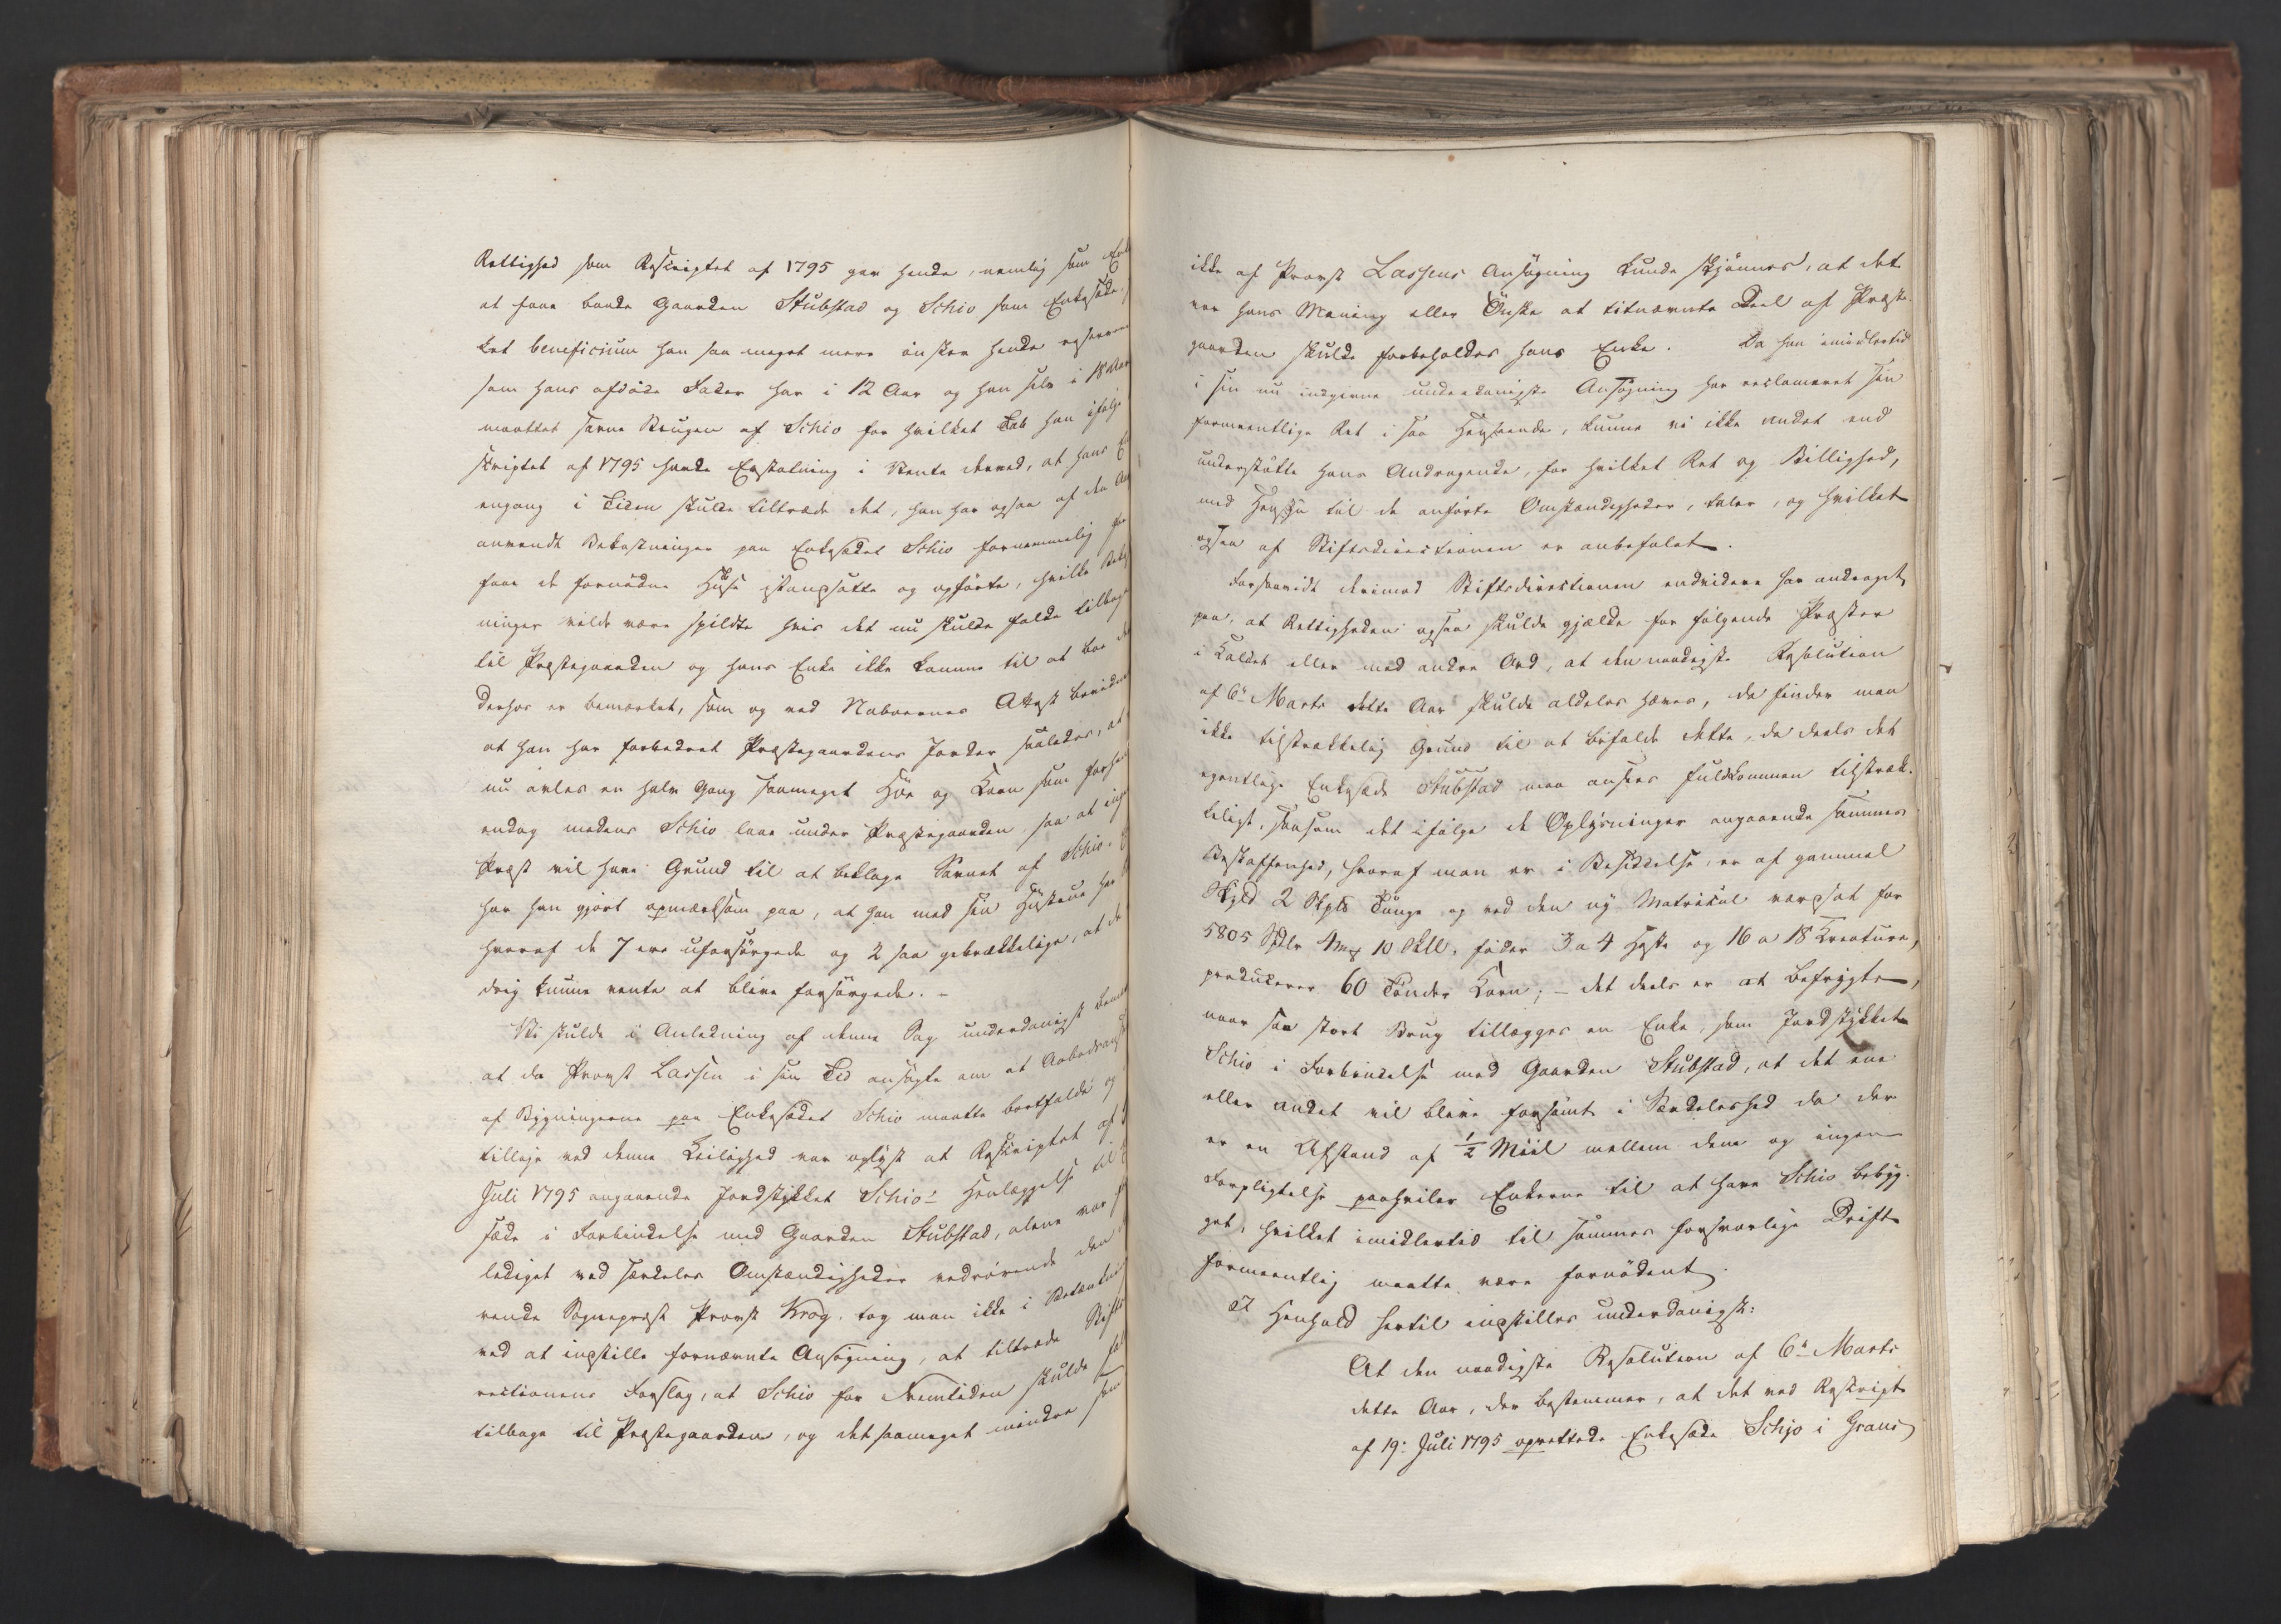 Rettighed som Rescriptet af 1795 gav hende, nemlig som Enke
at faae baade Gaarden Stubstad og Schio som Enkesæde,
det beneficium han saa meget mere ønsker hende
som hans afdøde Fader har i 12 Aar og han selv i 18 Aar
maattet savne Brugen af Schio for hvilket Tab han ifølge
scriptet af 1795 havde Erstatning i Vente derved, at hans
engang i Tiden skulde tiltræde det, han har ogsaa af den
anvendt Bekostninger paa Enkesædet Schio fornemmelig for
faae de fornødne Huse istandsatte og opførte, hvilke
ninger vilde være spildte hvis det nu skulde falde tilbage
til Præstegaarden og hans Enke ikke komme til at boe
Derhos er bemærket, som og ved Naboernes Attest
at han har forbedret Præstegaardens Jorder saaledes, at
nu avles en halv Gang saameget Høe og Korn som
endog medens Schio laae under Præstegaarden, saa at
Præst vil have Grund til at beklage Savnet af Schio.
har han gjort opmærksom paa, at han med sin Hustrue har
hvoraf de 7 ere uforsørgede og 2 saa gebrækkelige, at de
drig kunne vente at blive forsørgede. –
Vi skulde i Anledning af denne Sag underdanigst
at da Provst Lassen i sin Tid ansøgte om at Aabodsansvar
af Bygningerne paa Enkesædet Schio maatte bortfalde og
tillige ved denne Leilighed var oplyst at Rescriptet af
Juli 1795 angaaende Jordstykket Schio's Henlæggelse til
sæde i Forbindelse med Gaarden Stubstad, alene var
lediget ved særdeles Omstændigheder vedrørende den
rende Sognepræst Provst Krog, tog man ikke i Betænkning
ved at indstille fornævnte Ansøgning, at tiltræde Stifts
rectionens Forslag, at Schio for Fremtiden skulde
tilbage til Præstegaarden, og det saameget mindre som
ikke af Provst Lassens Ansøgning kunde skjønnes, at det
var hans Mening eller Ønske at titnævnte Deel af Præste-
gaarden skulde forbeholdes hans Enke. Da han imidlertid
i sin nu indgivne underdanigste Ansøgning har reclameret sin
formeentlige Ret i saa Henseende, kunne vi ikke andet end
understøtte hans Andragende, for hvilket Ret og Billighed,
med Hensyn til de anførte Omstændigheder, taler, og hvilket
ogsaa af Stiftsdirectionen er anbefalet.
Forsaavidt derimod Stiftsdirectionen endvidere har andraget
paa, at Rettigheden ogsaa skulde gjælde for følgende Præster
i Kaldet eller med andre Ord, at den naadigste Resolution
af 6te Marts dette Aar skulde aldeles hæves, da finder man
ikke tilstrækkelig Grund til at bifalde dette, da deels det
egentlige Enkesæde Stubstad maa ansees fuldkommen tilstræk-
keligt, saasom det ifølge de Oplysninger angaaende sammes
Beskaffenhed, hvoraf man er i Besiddelse, er af gammel
Skyld 2 Skpd Tunge og ved den ny Matricul værdsat for
5805 Spdlr 4 mk 10 Skll. føder 3 a 4 Heste og 16 a 18 Kreature,
producerer 60 Tønder Korn; – det deels er at befrygte,
naar saa stort Brug tillægges en Enke, som Jordstykket
Schio i Forbindelse med Gaarden Stubstad, at det ene
eller andet vil blive forsømt i Særdeleshed da der
er en Afstand af 1/2 Miil mellem dem og ingen
Forpligtelse paahviler Enkerne til at have Schio bebyg-
get, hvilket imidlertid til sammes forsvarlige Drift
formeentlig maatte være fornødent.
I Henhold hertil indstilles underdanigst:
At den naadigste Resolution af 6te Marts
dette Aar, der bestemmer, at det ved Rescript
af 19: Juli 1795 oprettede Enkesæde Schjo i Grans